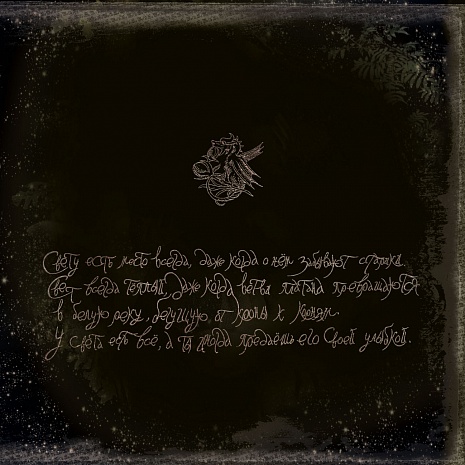 Свету есть место всегда, даже когда о нём забывают
Свет всегда тёплый, даже когда ветви платана превращаются
в белую реку, бегущую от кроны к корням.
У света есть всё, а ты иногда предаёшь его своей улыбкой.